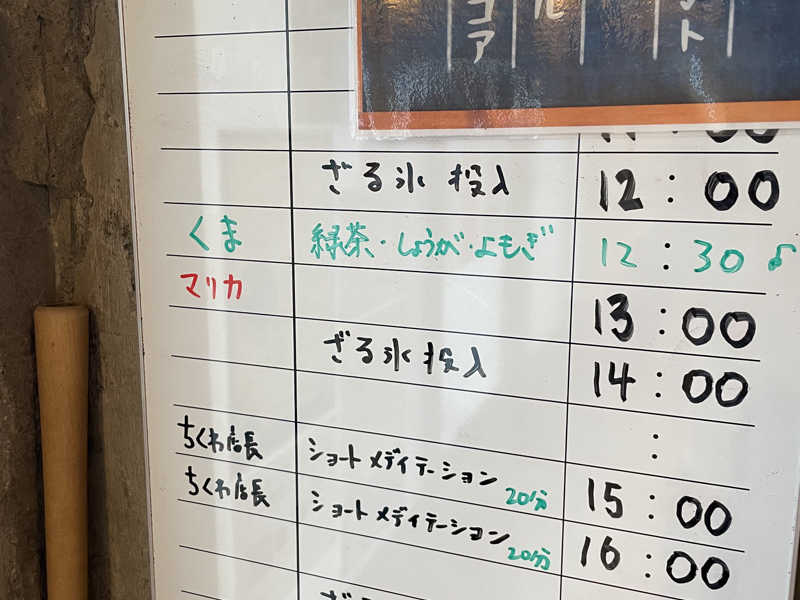 コア
ル
ット
ざる氷 投入 12:00
くま 緑茶・しょうが・よもぎ 12:30♪
マリカ 13:00
ざる氷投入 14:00
:
ちくわ店長 ショートメディテーション 20分 15:00
ちくわ店長 ショートメディテーション 20分 16:00